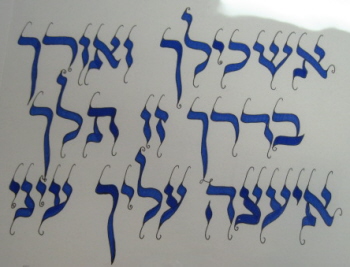 אשכילך ואורך
בדרך זו תלך
איעצה עליך עיני